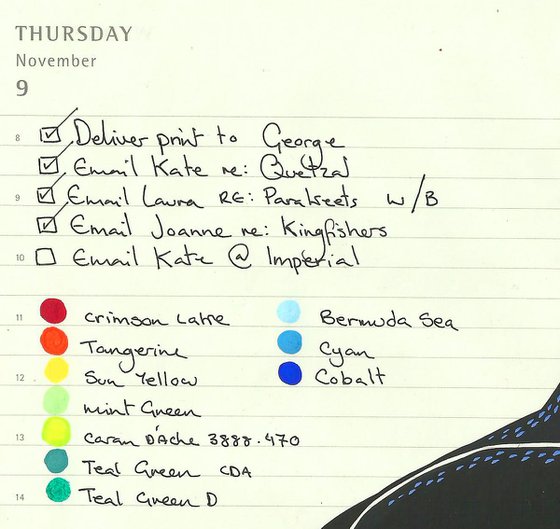 THURSDAY
November
9
8 Deliver print to George
Email Kate re: Quetzal
9 Email Laura RE: Parakeets w/B
Email Joanne re: Kingfishers
10 Email Kate @ Imperial
11 Crimson Lake Bermuda Sea
Tangerine Cyan
12 Sun Yellow Cobalt
Mint Green
13 Caran D'Ache 3888.470
Teal Green CDA
14 Teal Green D